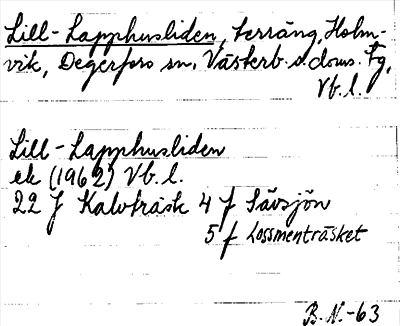 Lill-Lapphusliden, terräng, Holm-
vik, Degerfors sn, Västerb. s. doms. Fg,
Vb. l.
Lill-Lapphusliden
ek (1962) Vb. l.
22 J Kalvträsk 4 f Sävsjön
5 f Lossmenträsket
B. N.-63